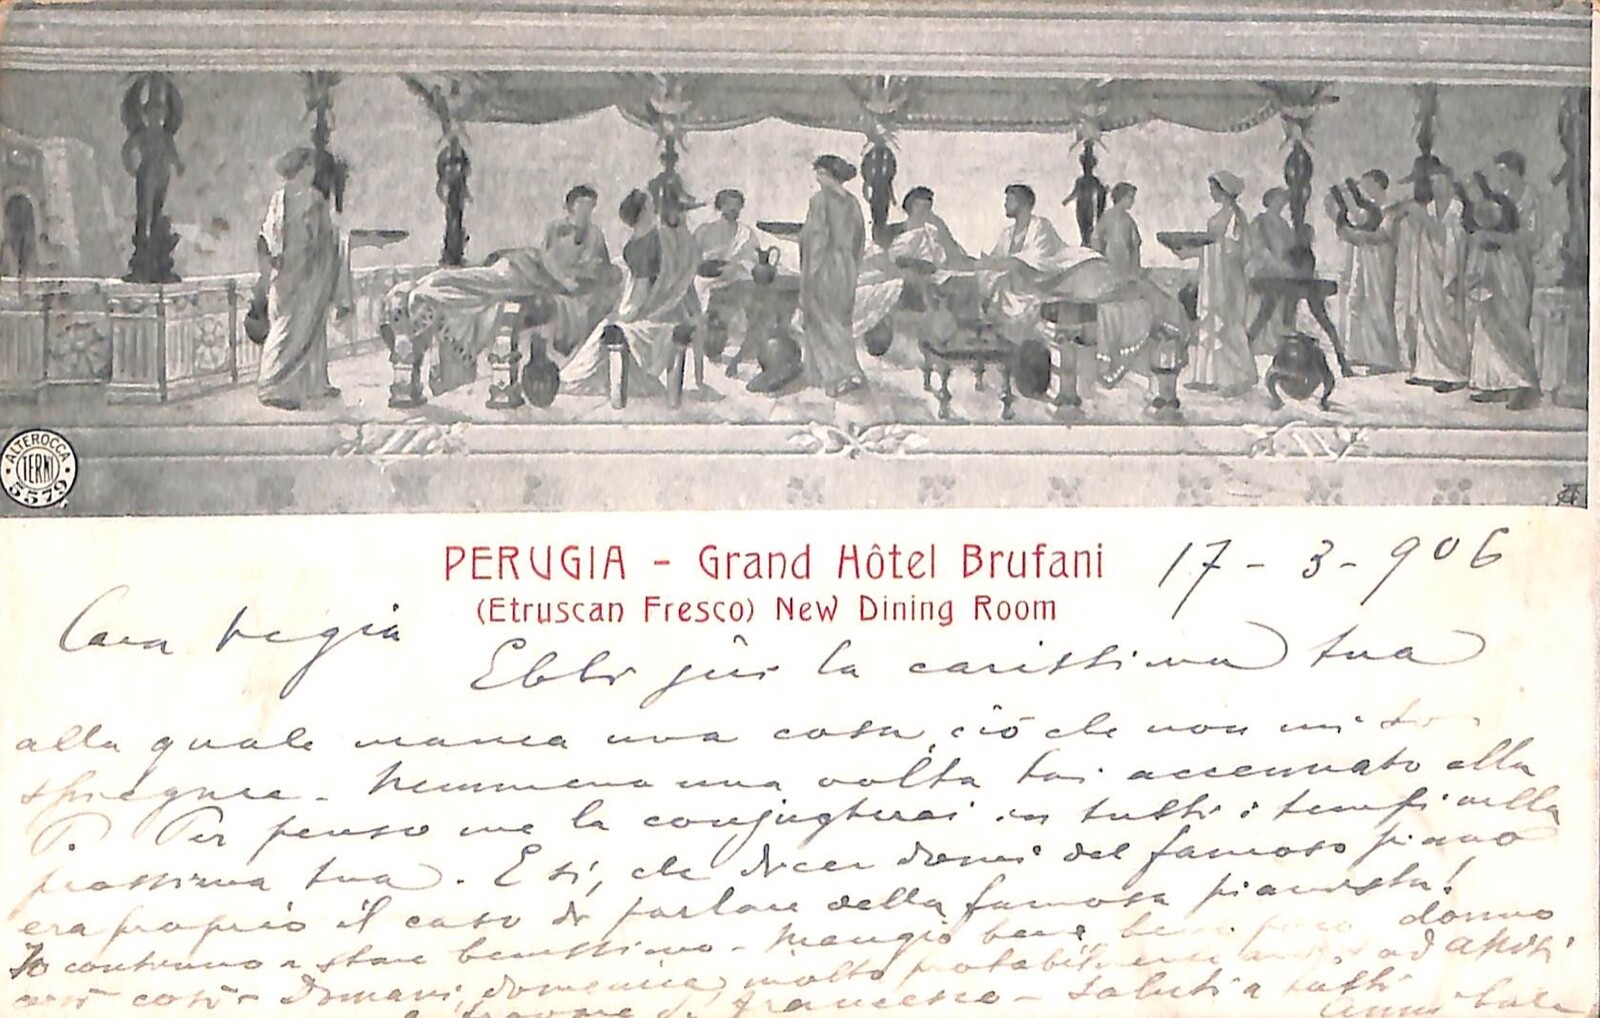 ALTEROCCA
TERNI
5579
PERUGIA - Grand Hôtel Brufani
(Etruscan Fresco) New Dining Room
17-3-906
Cara
Ebbi la carissima tua
alla quale manca una cosa, ciò che non mi so
spiegare - Nemmeno una volta hai accennato alla
P. Per penso me la conjugherai in tutti i tempi nella
prossima tua. E sì, che dicendomi del famoso piano
era proprio il caso di parlare della famosa pianista!
Io continuo a stare benissimo - Mangio bene poco dormo
così così - Domani, domenica, molto probabilmente ad Assisi
di Francesco - Saluti a tutti